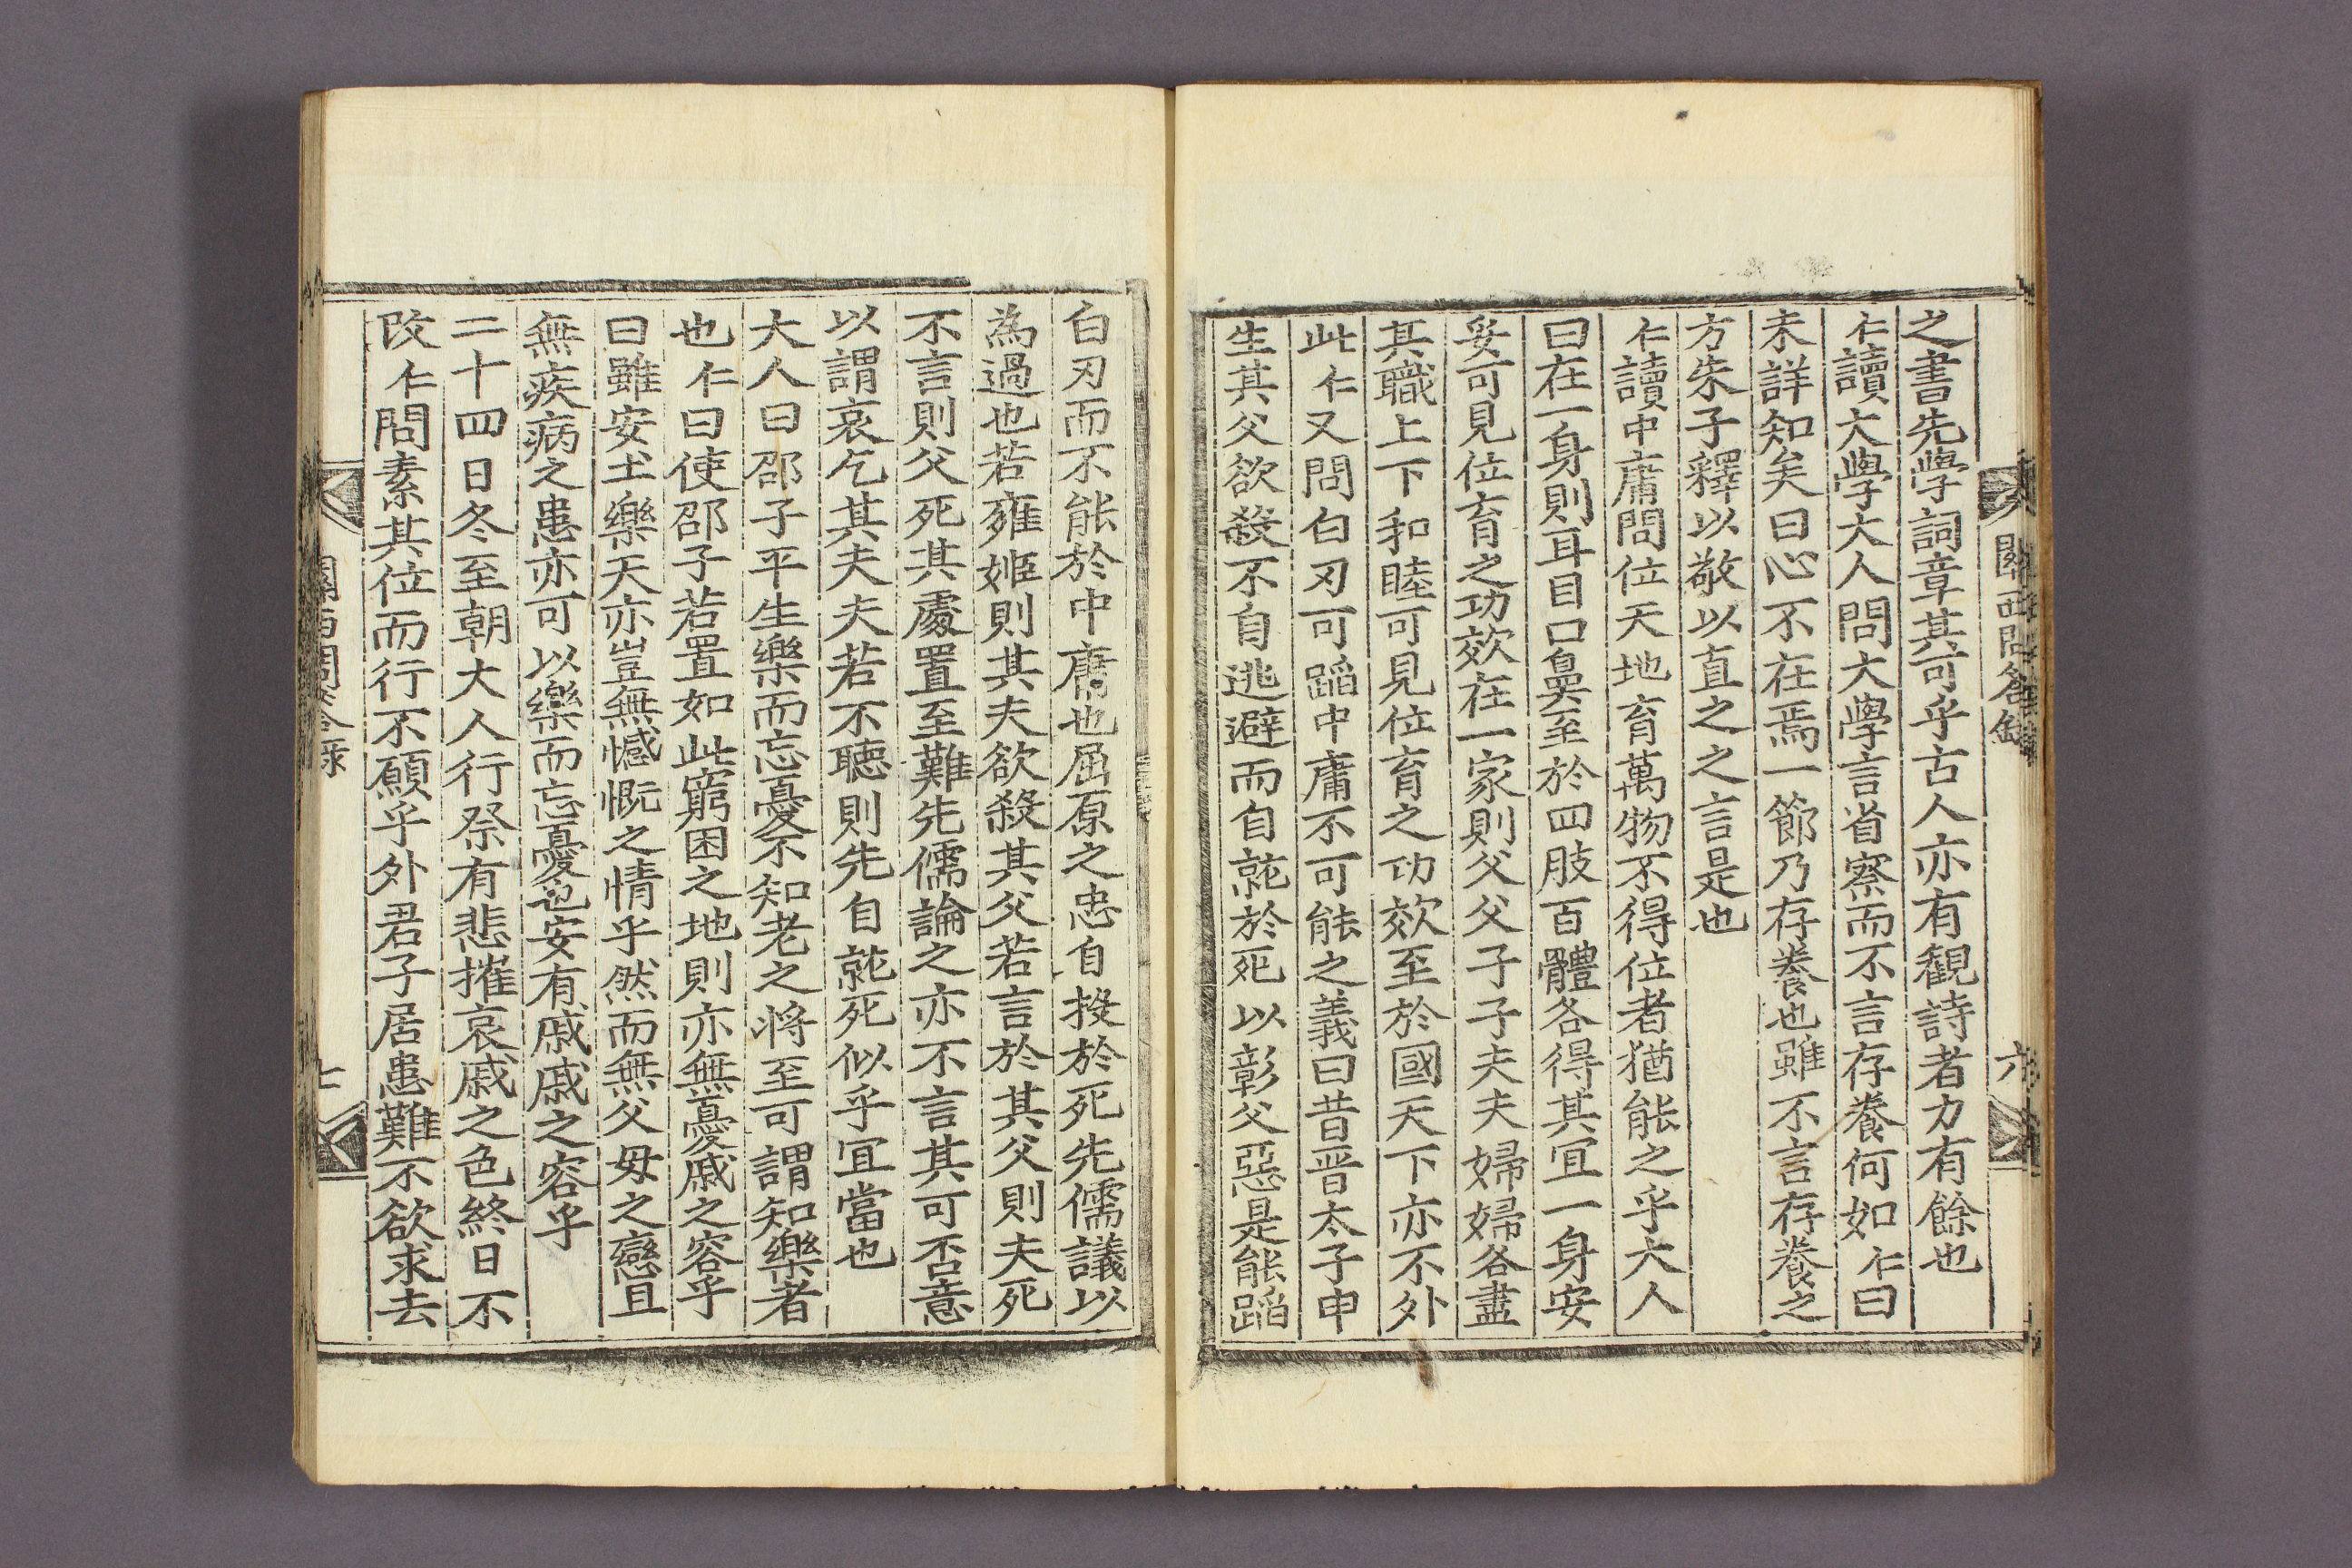 關西問答錄
六
之書先學詞章其可乎古人亦有觀詩者力有餘也
仁讀大學大人問大學言省察而不言存養何如仁曰
未詳知矣曰心不在焉一節乃存養也雖不言存養之
方朱子釋以敬以直之之言是也
仁讀中庸問位天地育萬物不得位者猶能之乎大人
曰在一身則耳目口鼻至於四肢百體各得其冝一身安
妥可見位育之功效在一家則父父子子夫夫婦婦各盡
其職上下和睦可見位育之功效至於國天下亦不外
此仁又問白刃可蹈中庸不可能之義曰昔晋太子申
生其父欲殺不自逃避而自就於死以彰父惡是能蹈
白刃而不能於中庸也屈原之忠自投於死先儒議以
為過也若雍姬則其夫欲殺其父若言於其父則夫死
不言則父死其處置至難先儒論之亦不言其可否意
以謂哀乞其夫夫若不聽則先自就死似乎冝當也
大人曰邵子平生樂而忘憂不知老之將至可謂知樂者
也仁曰使邵子若置如此窮困之地則亦無憂戚之容乎
曰雖安土樂天亦豈無憾慨之情乎然而無父母之戀且
無疾病之患亦可以樂而忘憂也安有戚戚之容乎
二十四日冬至朝大人行祭有悲摧哀戚之色終日不
改仁問素其位而行不願乎外君子居患難不欲求去
關西問答錄
七